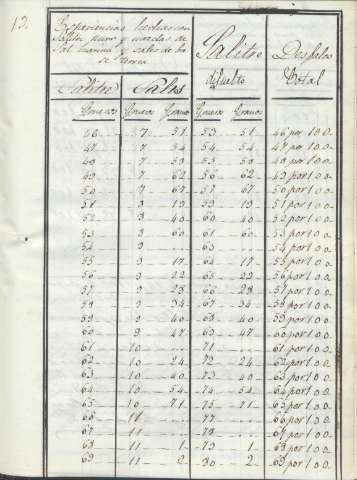 13.
Experiencias hechas con
Salitre puro y mezclas de
Sal marina y sales de ba
se terrea
Salitre
disuelto
Total
Salitre Sales
Gruesos Gruesos Granos Gruesos Granos
46 7 51 53 51 46 por 100
47 7 54 54 54 47 por 100
48 7 48 por 100
49 7 62 56 62 49 por 100
50 7 67 57 67 50 por 100
51 8 19 59 19 51 por 100
52 8 40 60 40 52 por 100
53 8 60 61 60 53 por 100
54 9 63 54 por 100
55 9 17 64 17 55 por 100
56 9 22 65 22 56 por 100
57 9 28 66 28 57 por 100
58 9 34 67 34 58 por 100
59 9 40 68 40 59 por 100
60 9 47 69 47 60 por 100
61 10 71 61 por 100
62 10 24 72 24 62 por 100
63 10 40 73 40 63 por 100
64 10 54 74 54 64 por 100
65 10 71 75 71 65 por 100
66 11 77 66 por 100
67 11 78 67 por 100
68 11 1 79 1 68 por 100
69 11 2 80 2 69 por 100